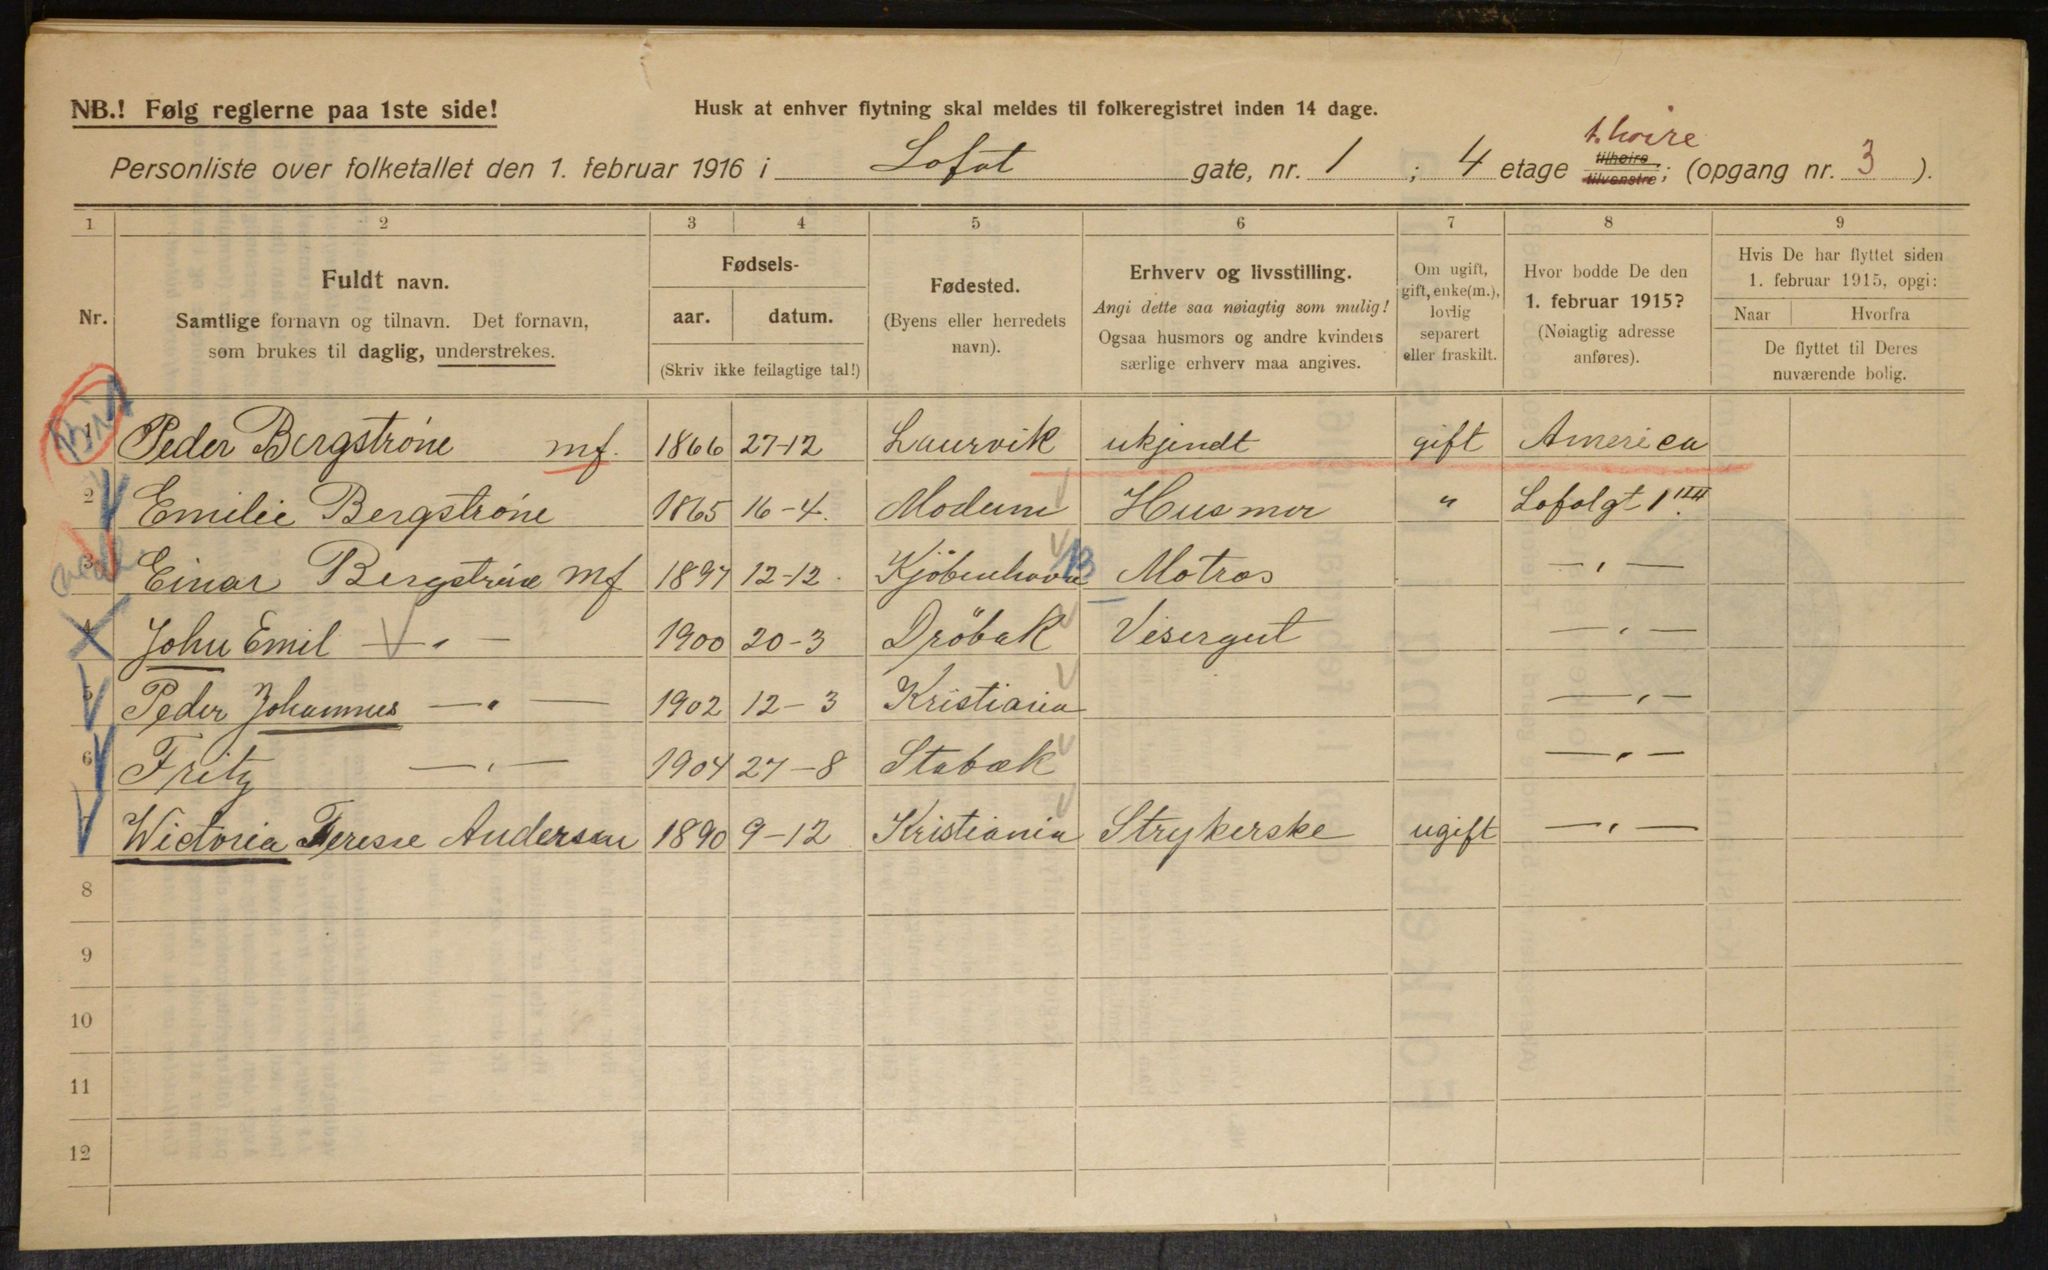 NB.! Følg reglerne paa 1ste side!
Husk at enhver flytning skal meldes til folkeregistret inden 14 dage.
t. hoire
Personliste over folketallet den 1. februar 1916 i Lofot gate, nr. 1 ; 4 etage tilhøire tilvenstre; (opgang nr. 3 ).
1 2 3 4 5 6 7 8 9
Nr.
Fuldt navn.
Samtlige fornavn og tilnavn. Det fornavn,
som brukes til daglig, understrekes.
Fødsels-
aar. datum.
(Skriv ikke feilagtige tal!)
Fødested.
(Byens eller herredets
navn).
Erhverv og livsstilling.
Angi dette saa nøiagtig som mulig!
Ogsaa husmors og andre kvinders
særlige erhverv maa angives.
Om ugift,
gift, enke(m.),
lovlig
separert
eller fraskilt.
Hvor bodde De den
1. februar 1915?
(Nøiagtig adresse
anføres).
Hvis De har flyttet siden
1. februar 1915, opgi:
Naar Hvorfra
De flyttet til Deres
nuværende bolig.
1 Peder Bergstrøne mf. 1866 27-12 Laurvik ukjendt gift America
2 Emilie Bergstrøne 1865 16-4. Modum Husmor " Lofotgt 1 III
3 Einar Bergstrøne mf 1897 12-12. Kjöbenhavn Matros — " —
4 John Emil — " — 1900 20-3 Dröbak Visergut — " —
5 Peder Johannes — " — 1902 12-3 Kristiania — " —
6 Fritz — " — 1904 27-8 Stabæk — " —
7 Wictoria Terese Andersen 1890 9-12 Kristiania Strykerske ugift — " —
8
9
10
11
12